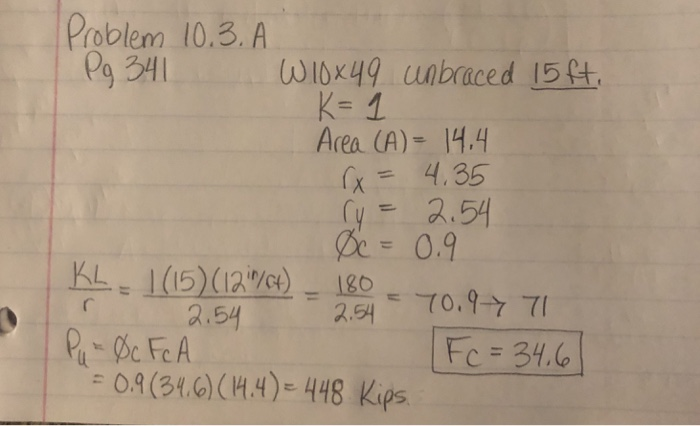 Problem 10.3.A
Pg 341 W10x49 unbraced 15 ft.
K = 1
Area (A) = 14.4
rx = 4.35
ry = 2.54
Øc = 0.9
KL/r = 1(15)(12 in/ft)/2.54 = 180/2.54 = 70.9 → 71
Pu = Øc Fc A Fc = 34.6
= 0.9(34.6)(14.4) = 448 Kips.